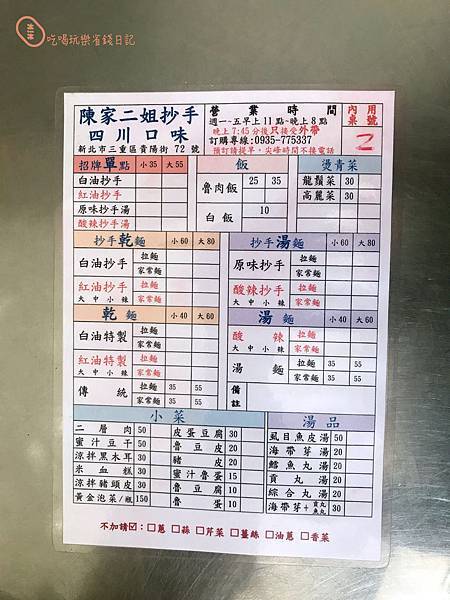 吃喝玩樂省錢日記
陳家二姐抄手
四川口味
新北市三重區貴陽街 72 號
營業時間
週一-五早上11點~晚上8點
晚上7:45分後只接受外帶
訂購專線:0935-775337
預訂請提早,尖峰時間不接電話
內用桌號
2
招牌單點 小35 大55
白油抄手
紅油抄手
原味抄手湯
酸辣抄手湯
飯
魯肉飯 25 35
白飯 10
燙青菜
龍鬚菜 30
高麗菜 30
抄手乾麵 小60 大80
白油抄手 拉麵 家常麵
紅油抄手 拉麵 家常麵
大 中 小 辣
抄手湯麵 小60 大80
原味抄手 拉麵 家常麵
酸辣抄手 拉麵 家常麵
大 中 小 辣
乾麵 小40 大60
白油特製 拉麵 家常麵
紅油特製 拉麵 家常麵
大 中 小 辣
傳統 拉麵 35 55
家常麵 35 55
湯麵 小40 大60
酸辣 拉麵 家常麵
大 中 小 辣
湯麵 拉麵 35 55
家常麵 35 55
備註
小菜
二層肉 50
蜜汁豆干 50
涼拌黑木耳 30
米血糕 30
涼拌豬頭皮 30
黃金泡菜/瓶 150
皮蛋豆腐 30
魯豆皮 20
豬皮 20
蜜汁魯蛋 15
魯豆腐 10
魯蛋 10
湯品
虱目魚皮湯 50
海帶芽湯 20
鱈魚丸湯 20
貢丸湯 20
綜合丸湯 20
海帶芽+貢丸魚丸 30
不加請☑:□蔥 □蒜 □芹菜 □薑絲 □油蔥 □香菜